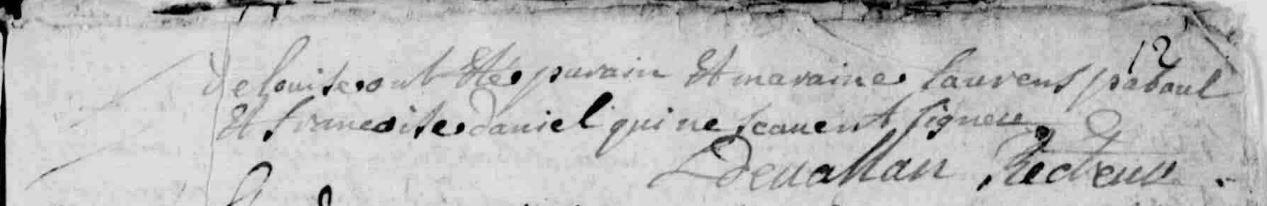 12
de louise ont été parain et maraine laurens paboul
et francoise daniel qui ne scauent signer
Deuallan Recteur